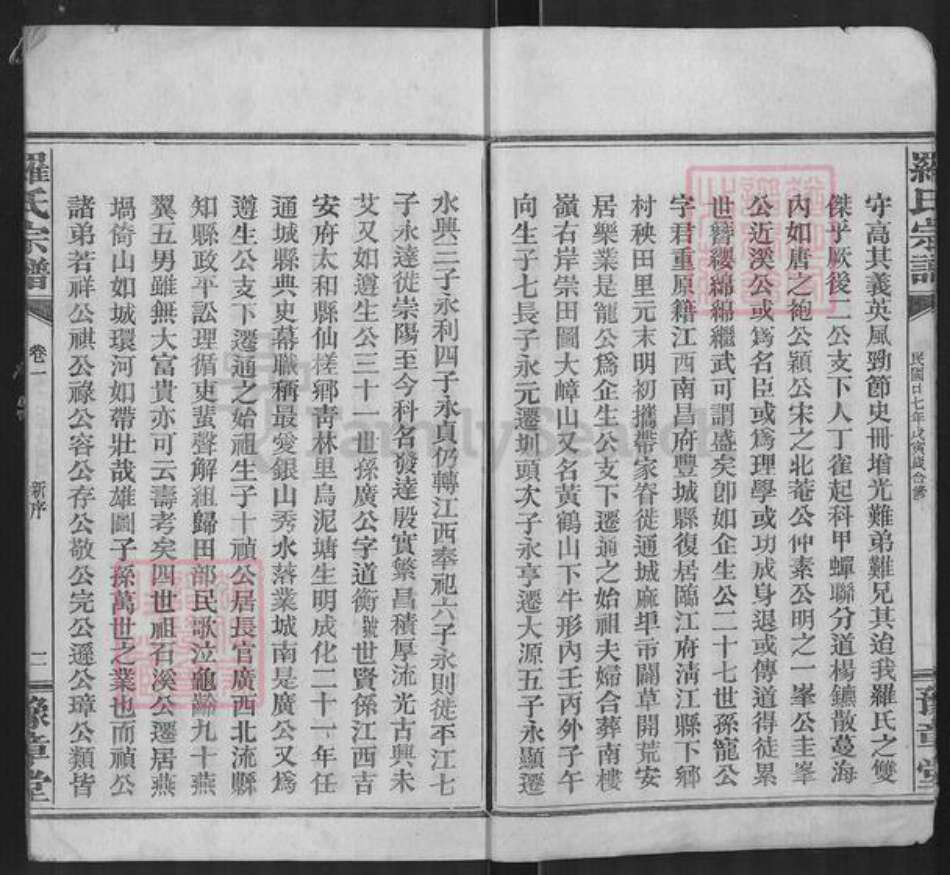 羅氏宗譜
民國廿七年戊寅歲合修
豫章堂
守高其義英風勁節史冊增光難弟難兄其追我羅氏之雙
傑乎厥後二公支下人丁雀起科甲蟬聯分道楊鑣散蔓海
內如唐之袍公穎公宋之北菴公仲素公明之一峯公圭峯
公近溪公或爲名臣或爲理學或功成身退或傳道得徒累
世簪纓綿綿繼武可謂盛矣卽如企生公二十七世孫龍公
字君重原籍江西南昌府豐城縣復居臨江府淸江縣下鄉
村秧田里元末明初攜帶家眷徙通城麻埠市闢草開荒安
居樂業是龍公爲企生公支下遷通之始祖夫婦合葬南樓
嶺右岸崇田圖大嶂山又名黃鶴山下牛形內壬丙外子午
向生子七長子永元遷圳頭次子永亨遷大源五子永顯遷
永興三子永利四子永貞仍轉江西奉祀六子永則徙平江七
子永達徙崇陽至今科名發達殷實繁昌積厚流光古興未
艾又如遵生公三十一世孫廣公字道衡號世賢係江西吉
安府太和縣仙槎鄉靑林里烏泥塘生明成化二十一年任
通城縣典史幕職稱最愛銀山秀水落業城南是廣公又爲
遵生公支下遷通之始祖生子十禎公居長官廣西北流縣
知縣政平訟理循吏蜚聲解組歸田部民歌泣龜齡九十燕
翼五男雖無大富貴亦可云壽考矣四世祖石溪公遷居燕
塥倚山如城環河如帶壯哉雄圖子孫萬世之業也而禎公
諸弟若祥公祺公祿公容公存公敬公完公遜公璋公類皆
羅氏宗譜
卷一
新序
二
豫章堂
FamilySearch